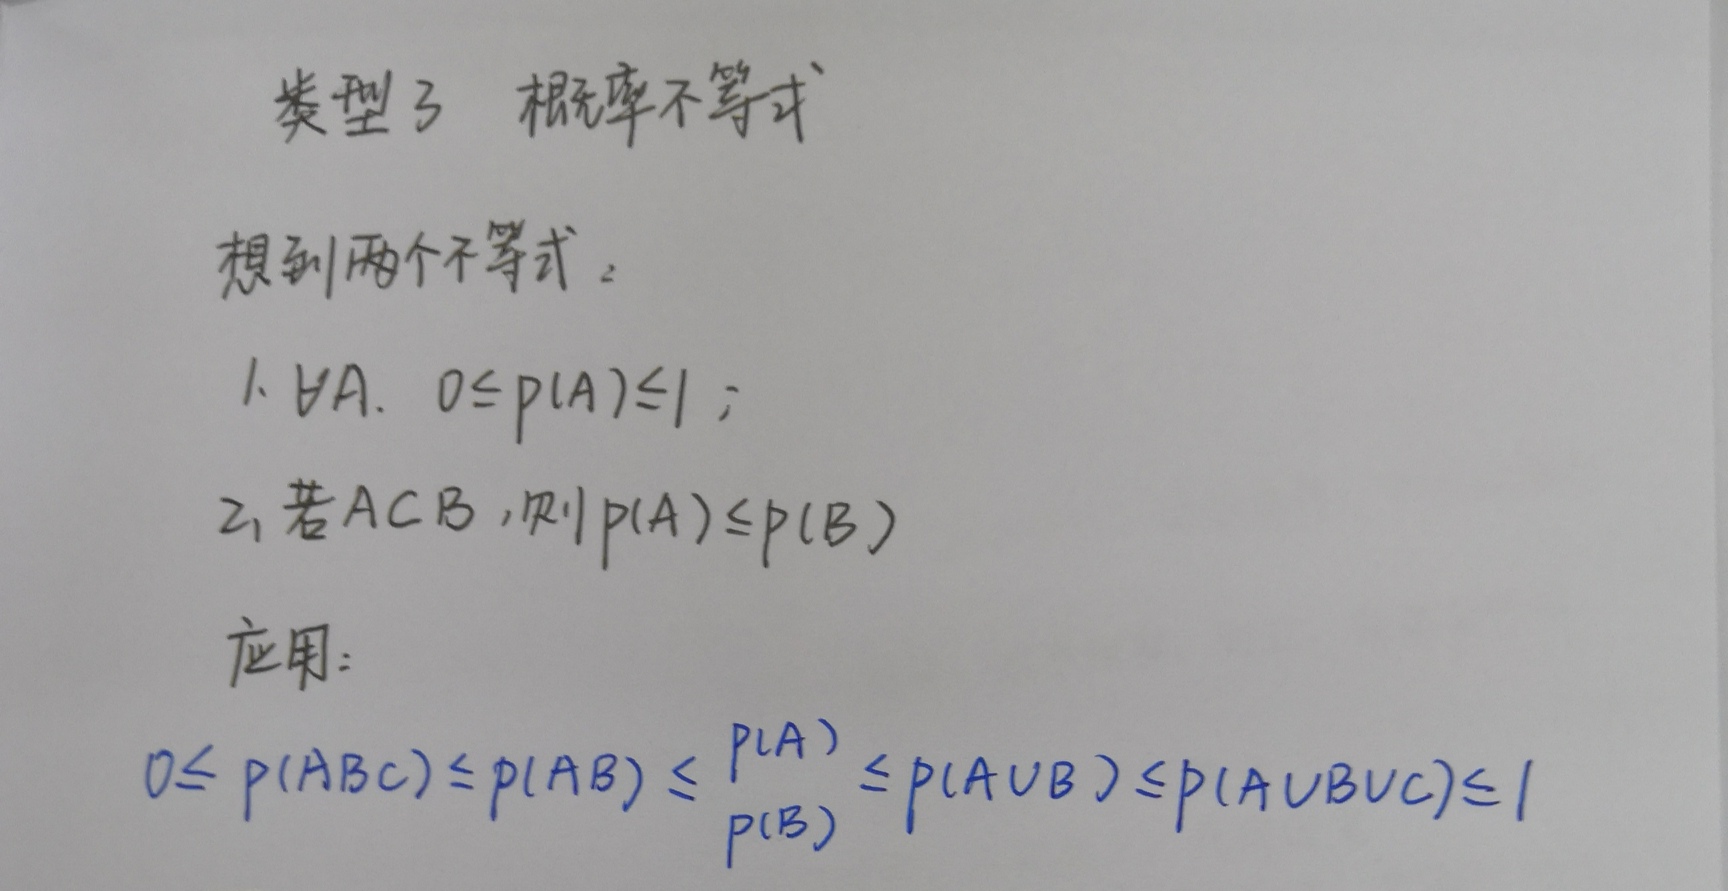 类型3 概率不等式
想到两个不等式:
1. ∀A. 0≤p(A)≤1;
2, 若A⊂B,则p(A)≤p(B)
应用:
0≤ p(ABC)≤p(AB)≤ p(A) p(B) ≤p(A∪B)≤p(A∪B∪C)≤1